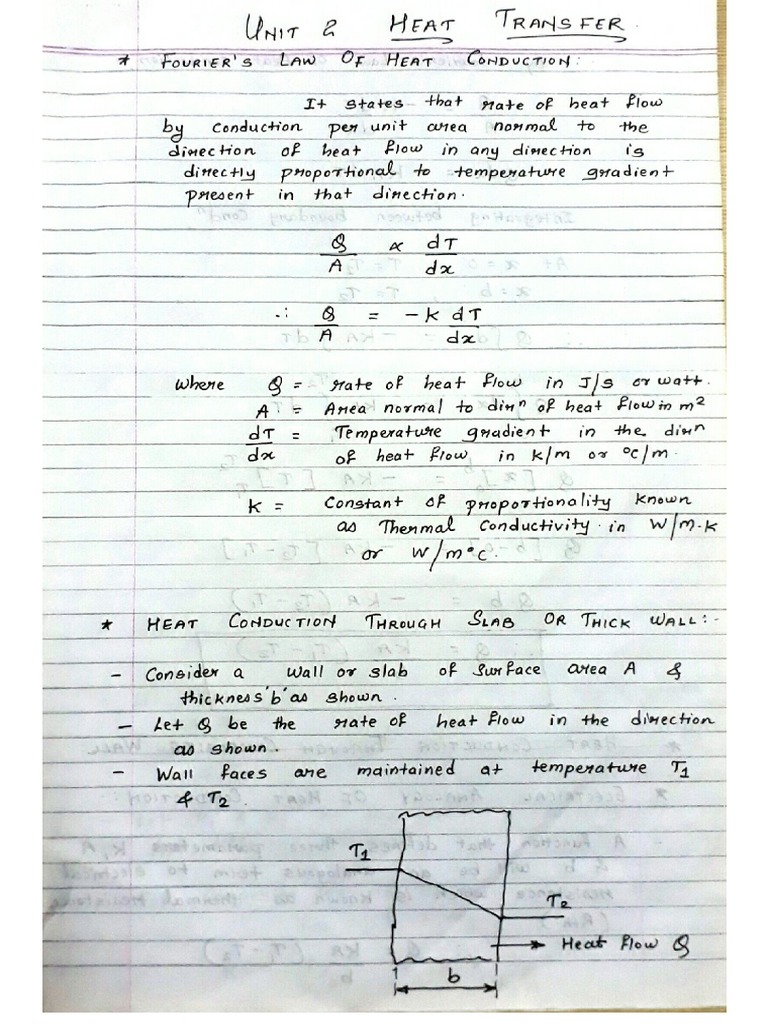 UNIT 2 HEAT TRANSFER
* FOURIER'S LAW OF HEAT CONDUCTION:
It states that rate of heat flow
by conduction per unit area normal to the
direction of heat flow in any direction is
directly proportional to temperature gradient
present in that direction.
Q/A ∝ dT/dx
∴ Q/A = -K dT/dx
where Q = rate of heat flow in J/s or watt.
A = Area normal to dirⁿ of heat flow in m²
dT/dx = Temperature gradient in the dirⁿ
of heat flow in k/m or °c/m.
K = Constant of proportionality known
as Thermal Conductivity in W/m.k
or W/m°c.
* HEAT CONDUCTION THROUGH SLAB OR THICK WALL:-
- Consider a wall or slab of surface area A &
thickness 'b' as shown.
- Let Q be the rate of heat flow in the direction
as shown.
- Wall faces are maintained at temperature T1
& T2.
T1
T2
Heat flow Q
b